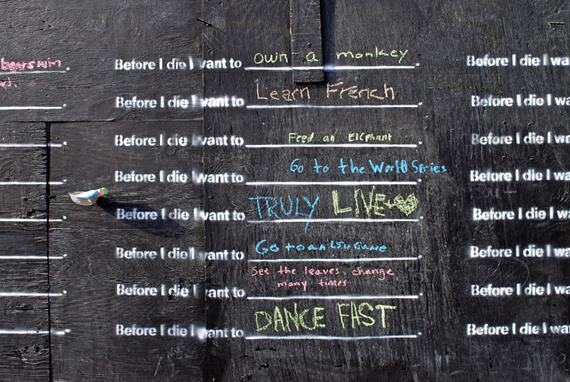 Before I die I want to own a monkey.
Before I die I want to Learn French.
Before I die I want to Feed an Elephant.
Before I die I want to Go to the World Series.
Before I die I want to TRULY LIVE.
Before I die I want to Go to an LSU Game.
Before I die I want to See the leaves change
many times.
Before I die I want to DANCE FAST.
bears win.
Before I die I wa
Before I die I wa
Before I die I wa
Before I die I wa
Before I die I wa
Before I die I wa
Before I die I wa
Before I die I wa